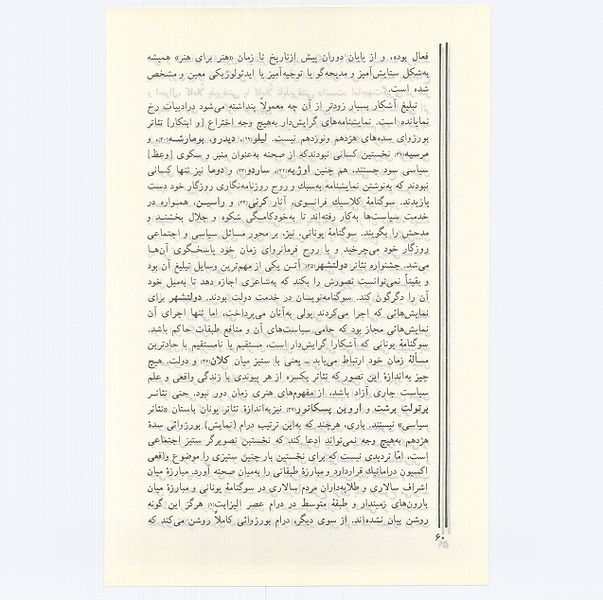 فعال بوده، و از پایان دوران پیش ازتاریخ تا زمان «هنر برای هنر» همیشه
به‌شکل ستایش‌آمیز و مدیحه‌گو یا توجیه‌آمیز یا ایدئولوژیکی معین و مشخص
شده است.
تبلیغ آشکار بسیار زودتر از آن چه معمولاً پنداشته می‌شود درادبیات رخ
نمایانده است. نمایشنامه‌های گرایش‌دار به‌هیچ وجه اختراع [و ابتکار] تئاتر
بورژوای سده‌های هژدهم ونوزدهم نیست. لیلو، دیدرو، بومارشه، و
مرسیه نخستین کسانی نبودندکه از صحنه به‌عنوان منبر و سکوی [وعظ]
سیاسی سود جستند، هم چنین اوژیه، ساردو و دوما نیز تنها کسانی
نبودند که به‌نوشتن نمایشنامه به‌سبك و روح روزنامه‌نگاری روزگار خود دست
یازیدند. سوگنامهٔ کلاسیك فرانسوی، آثار کرنی و راسین، همـواره در
خدمت سیاست‌ها به‌کار رفته‌اند تا به‌خودکامـگی شکوه و جلال بخشنـد و
مدحش را بگویند. سوگنامهٔ یونانی، نیز، بر محور مسائل سیاسی و اجتماعی
روزگار خود می‌چرخید و با روح فرمانروای زمان خود پاسخـگوی آن‌هـا
می‌شد. جشنواره تئاتر دولتشهر آتـن یکی از مهم‌ترین وسایل تبلیغ آن بود
و یقیناً نمی‌توانست تصورش را بکند که به‌شاعری اجازه دهد تا به‌میل خود
آن را دگرگون کند. سوگنامه‌نویسان در خدمت دولت بودند. دولتشهر برای
نمایش‌هائی که اجرا می‌کردند پولی به‌آنان می‌پرداخت، اما تنها اجرای آن
نمایش‌هائی مجاز بود که حامی سیاست‌های آن و منافع طبقات حاکم باشد.
سوگنامهٔ یونانی که آشکارا گرایش‌دار است، مستقیم یا نامستقیم با حادترین
مسألهٔ زمان خود ارتباط می‌یابد ـ یعنی با ستیز میان کلان و دولت. هیچ
چیز به‌اندازهٔ این تصور که تئاتر یکسره از هر پیوندی با زندگی واقعی و علم
سیاست جاری آزاد باشد، از مفهوم‌های هنری زمان دور نبود. حتی تئاتـر
برتولت برشت و اروین پسکاتور نیزبه‌اندازهٔ تئاتر یونان باستان «تئاتر
سیاسی» نیستند. باری، هرچند که به‌این ترتیب درام (نمایش) بورژوائی سدهٔ
هژدهم به‌هیچ وجه نمی‌تواند ادعا کند که نخستین تصویرگر ستیز اجتماعی
است، امّا تردیدی نیست که برای نخستین بار چنین ستیزی را موضوع واقعی
اکسیون دراماتیك قرارداد و مبارزهٔ طبقاتی را به‌میان صحنه آورد. مبارزهٔ میان
اشراف سالاری و طلایه‌داران مردم سالاری در سوگنامهٔ یونانی و مبارزهٔ میان
بارون‌های زمیندار و طبقهٔ متوسط در درام عصر الیزابت هرگز این گونه
روشن بیان نشده‌اند. از سوی دیگر، درام بورژوائی کاملاً روشن می‌کند که
۶۰